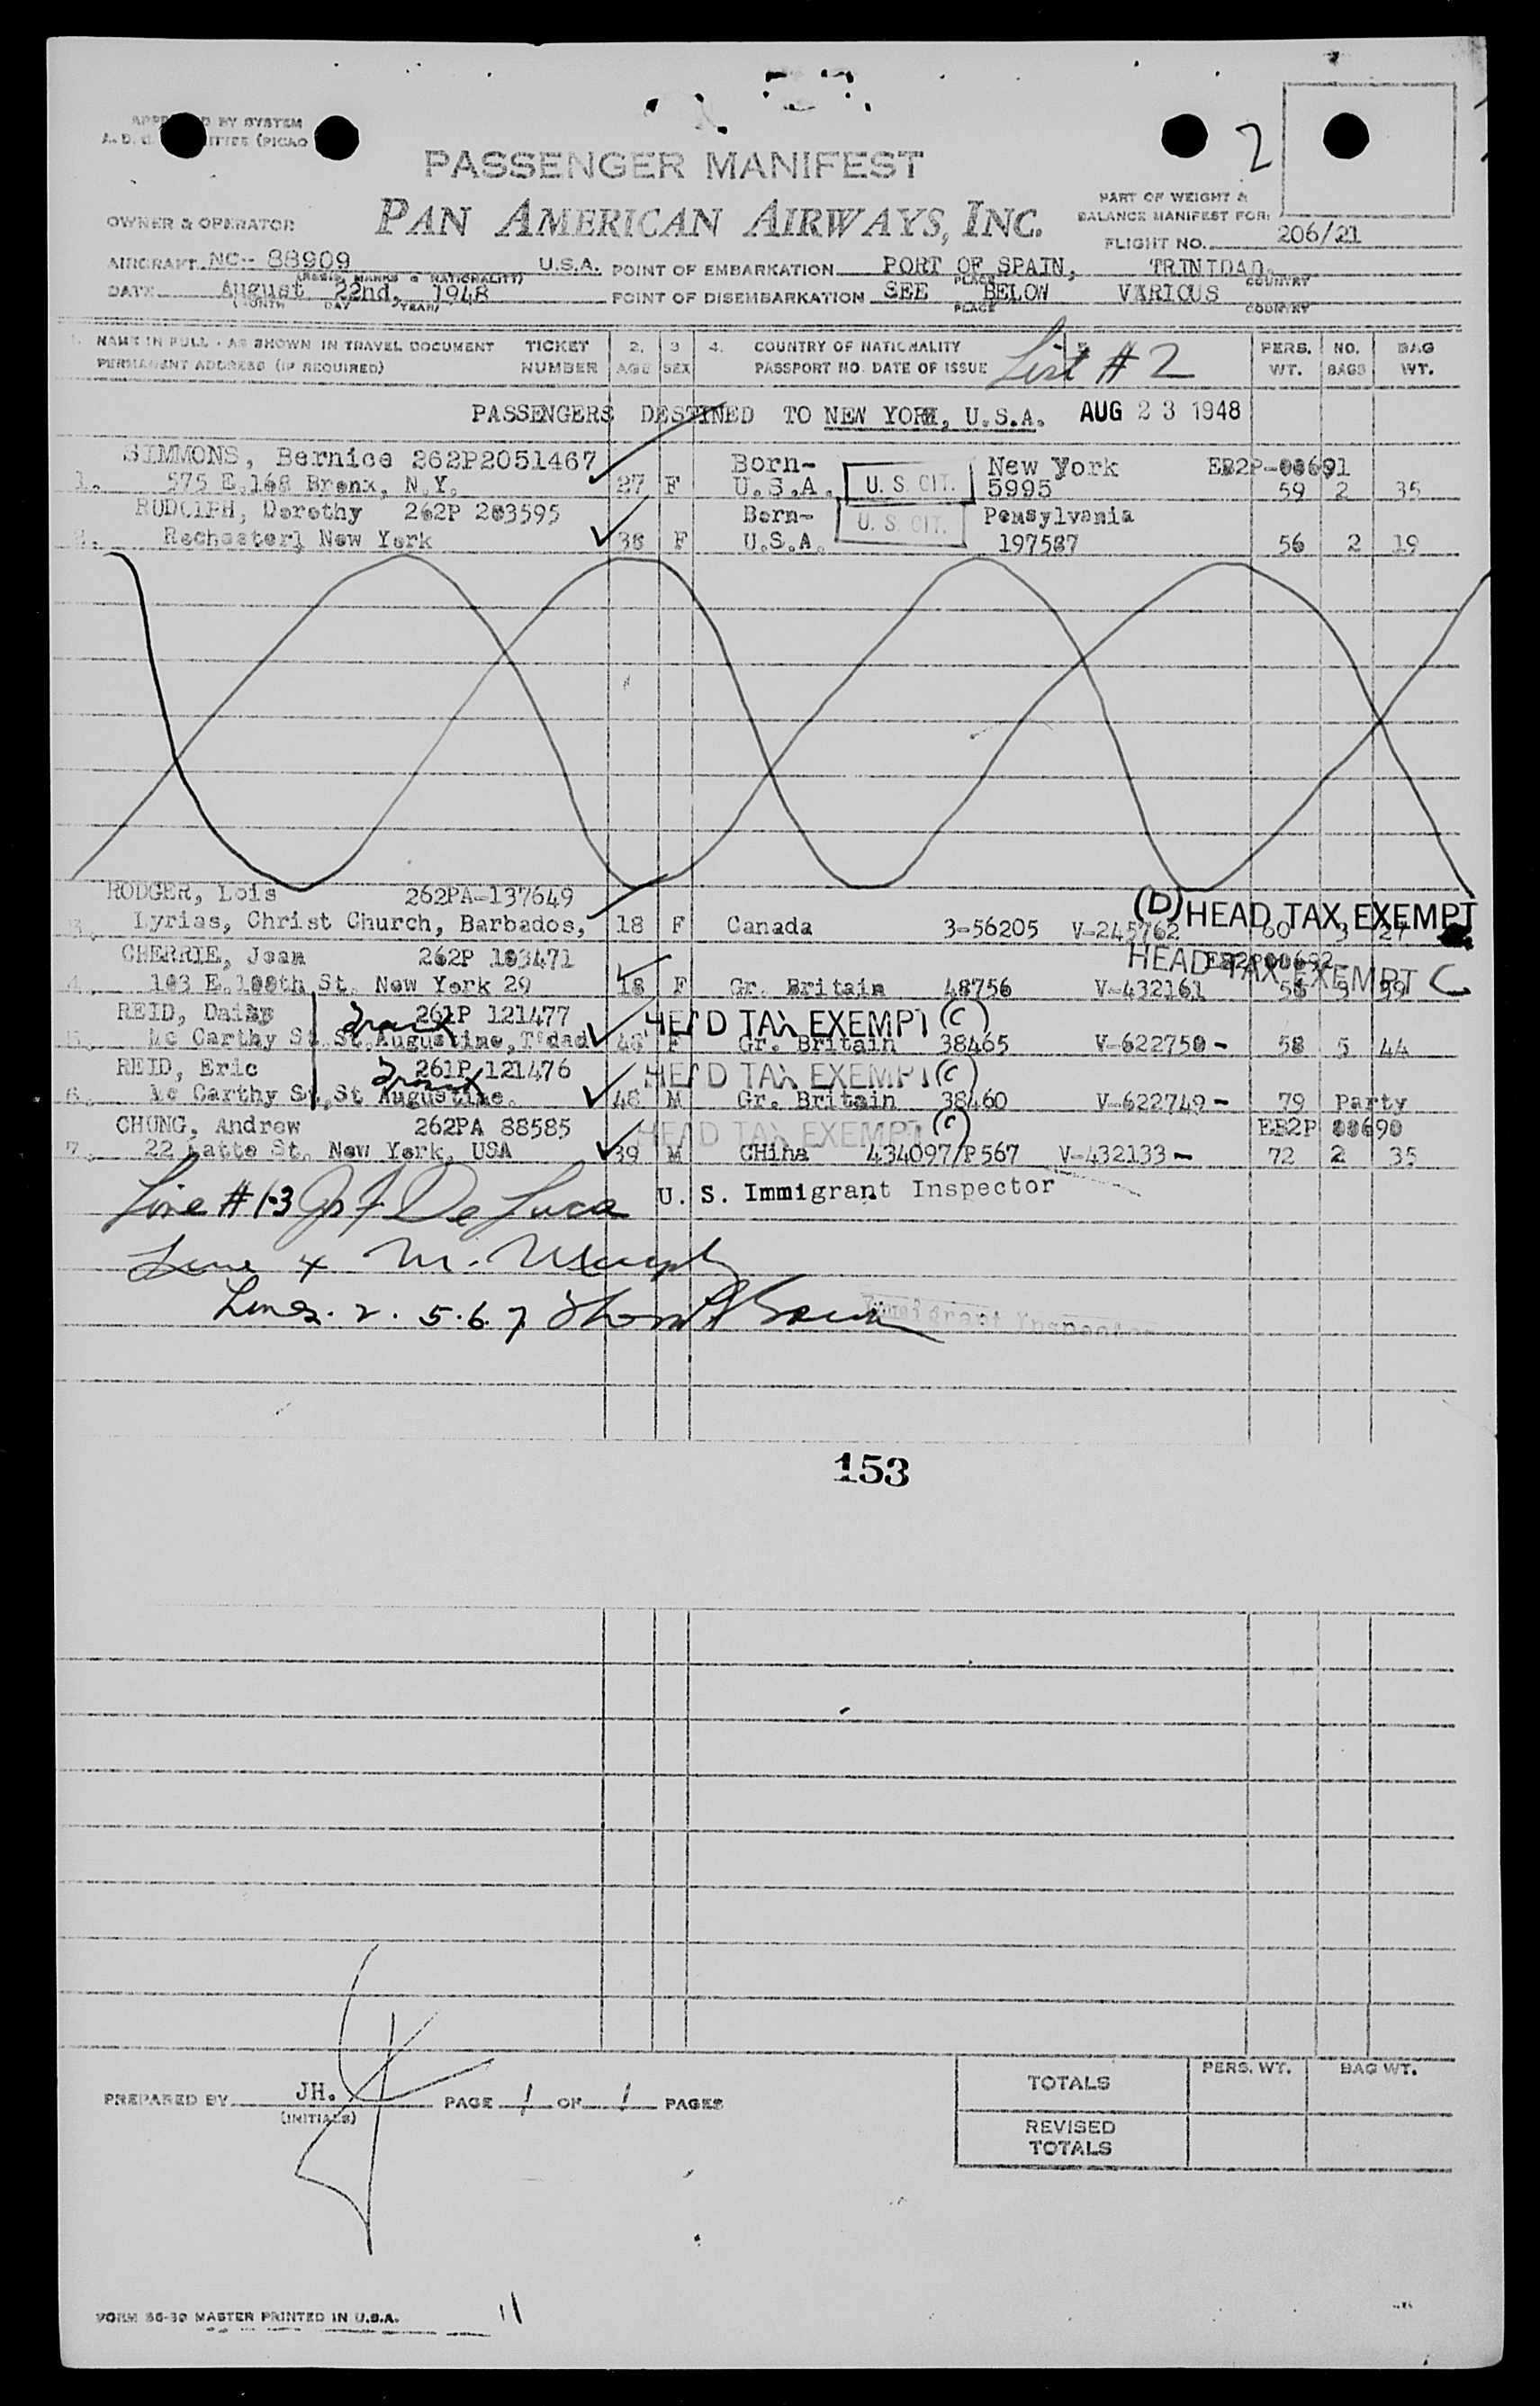 APPROVED BY SYSTEM
2
PASSENGER MANIFEST
PART OF WEIGHT &
BALANCE MANIFEST FOR:
OWNER & OPERATOR
PAN AMERICAN AIRWAYS, INC.
FLIGHT NO. 206/21
AIRCRAFT NC-- 88909 U.S.A. POINT OF EMBARKATION PORT OF SPAIN, TRINIDAD.
(REGIS. MARKS & NATIONALITY) PLACE COUNTRY
DATE August 22nd, 1948 POINT OF DISEMBARKATION SEE BELOW VARIOUS
(MONTH DAY YEAR) PLACE COUNTRY
1. NAME IN FULL - AS SHOWN IN TRAVEL DOCUMENT TICKET 2. 3 4. COUNTRY OF NATIONALITY 5. PERS. NO. BAG
PERMANENT ADDRESS (IF REQUIRED) NUMBER AGE SEX PASSPORT NO. DATE OF ISSUE List #2 WT. BAGS WT.
PASSENGERS DESTINED TO NEW YORK, U.S.A. AUG 23 1948
SIMMONS, Bernice 262P2051467 Born- New York EB2P-00691
1. 575 E.168 Bronx, N.Y. 27 F U.S.A. U. S. CIT. 5995 59 2 35
RUDOLPH, Dorothy 262P 203595 Born- U. S. CIT. Pennsylvania
2. Rochester, New York 36 F U.S.A. 197587 56 2 19
RODGER, Lois 262PA-137649 (D) HEAD TAX EXEMPT
3. Lyrias, Christ Church, Barbados, 18 F Canada 3-56205 V-245762 60 3 27
CHERRIE, Joan 262P 103471 HEAD TAX EXEMPT C
4. 103 E.100th St. New York 29 18 F Gr. Britain 48756 V-432161 56 3 39
REID, Daisy 261P 121477 HEAD TAX EXEMPT (C)
5. Mc Carthy St. St.Augustine, T'dad 46 F Gr. Britain 38465 V-622750 - 58 5 44
REID, Eric 261P 121476 HEAD TAX EXEMPT (C)
6. Mc Carthy St, St Augustine. 48 M Gr. Britain 38460 V-622749 - 79 Party
CHUNG, Andrew 262PA 88585 HEAD TAX EXEMPT (C) EB2P 00690
7. 22 Latte St. New York, USA 39 M CHina 434097/P567 V-432133 - 72 2 35
Line #1-3 De Luca U. S. Immigrant Inspector
Line 4 M. Murphy
Lines. 2. 5.6.7 Immigrant Inspector
153
TOTALS PERS. WT. BAG WT.
PREPARED BY JH. PAGE 1 OF 1 PAGES
(INITIALS)
REVISED
TOTALS
FORM 86-30 MASTER PRINTED IN U.S.A.
11